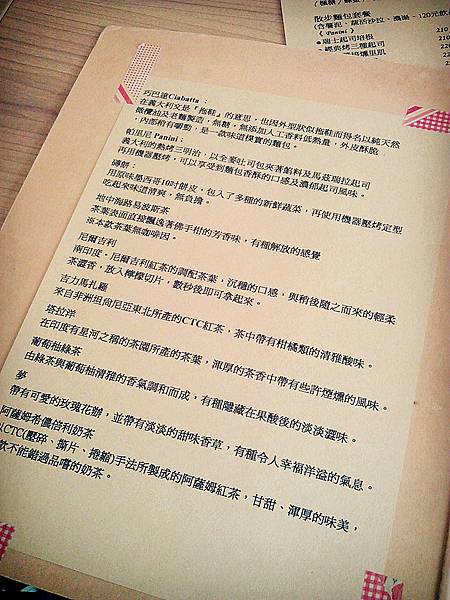 散步麵包套餐
《 Panini 》
瑞士起司培根
210
220
220
210
巧巴達Ciabatta：
在義大利文是『拖鞋』的意思，也因外型狀似拖鞋而得名以純天然
橄欖油及老麵製造，無糖，無添加人工香料低熱量，外皮酥脆
，內部稍有嚼勁，是一款味道樸實的麵包。
帕里尼 Panini：
義大利的熱烤三明治，以全麥吐司包夾著餡料及馬茲瑞拉起司
再用機器壓烤，可以享受到麵包香酥的口感及濃郁起司風味。
磚餅：
用原味墨西哥10吋餅皮，包入了多種的新鮮蔬菜，再使用機器壓烤定型
吃起來味道清爽，無負擔。
地中海路易波斯茶
茶葉表面直接飄逸著佛手柑的芳香味，有種解放的感覺
※本款茶葉無咖啡因。
尼爾吉利
南印度。尼爾吉利紅茶的調配茶葉，沉穩的口感，與稍後隨之而來的輕柔
茶澀香，放入檸檬切片，數秒後即可拿起來。
吉力馬扎羅
來自非洲坦尚尼亞東北所產的CTC紅茶，茶中帶有柑橘類的清雅酸味。
塔拉洋
在印度有星河之稱的茶園所產的茶葉，渾厚的茶香中帶有些許煙燻的風味。
葡萄柚綠茶
由綠茶與葡萄柚清雅的香氣調和而成，有種隱藏在果酸後的淡淡澀味。
夢
帶有可愛的玫瑰花瓣，並帶有淡淡的甜味香草，有種令人幸福洋溢的氣息。
阿薩姆希儂倍利奶茶
以CTC(壓碎、撕片、捲縮)手法所製成的阿薩姆紅茶，甘甜、渾厚的味美，
款不能錯過品嚐的奶茶。